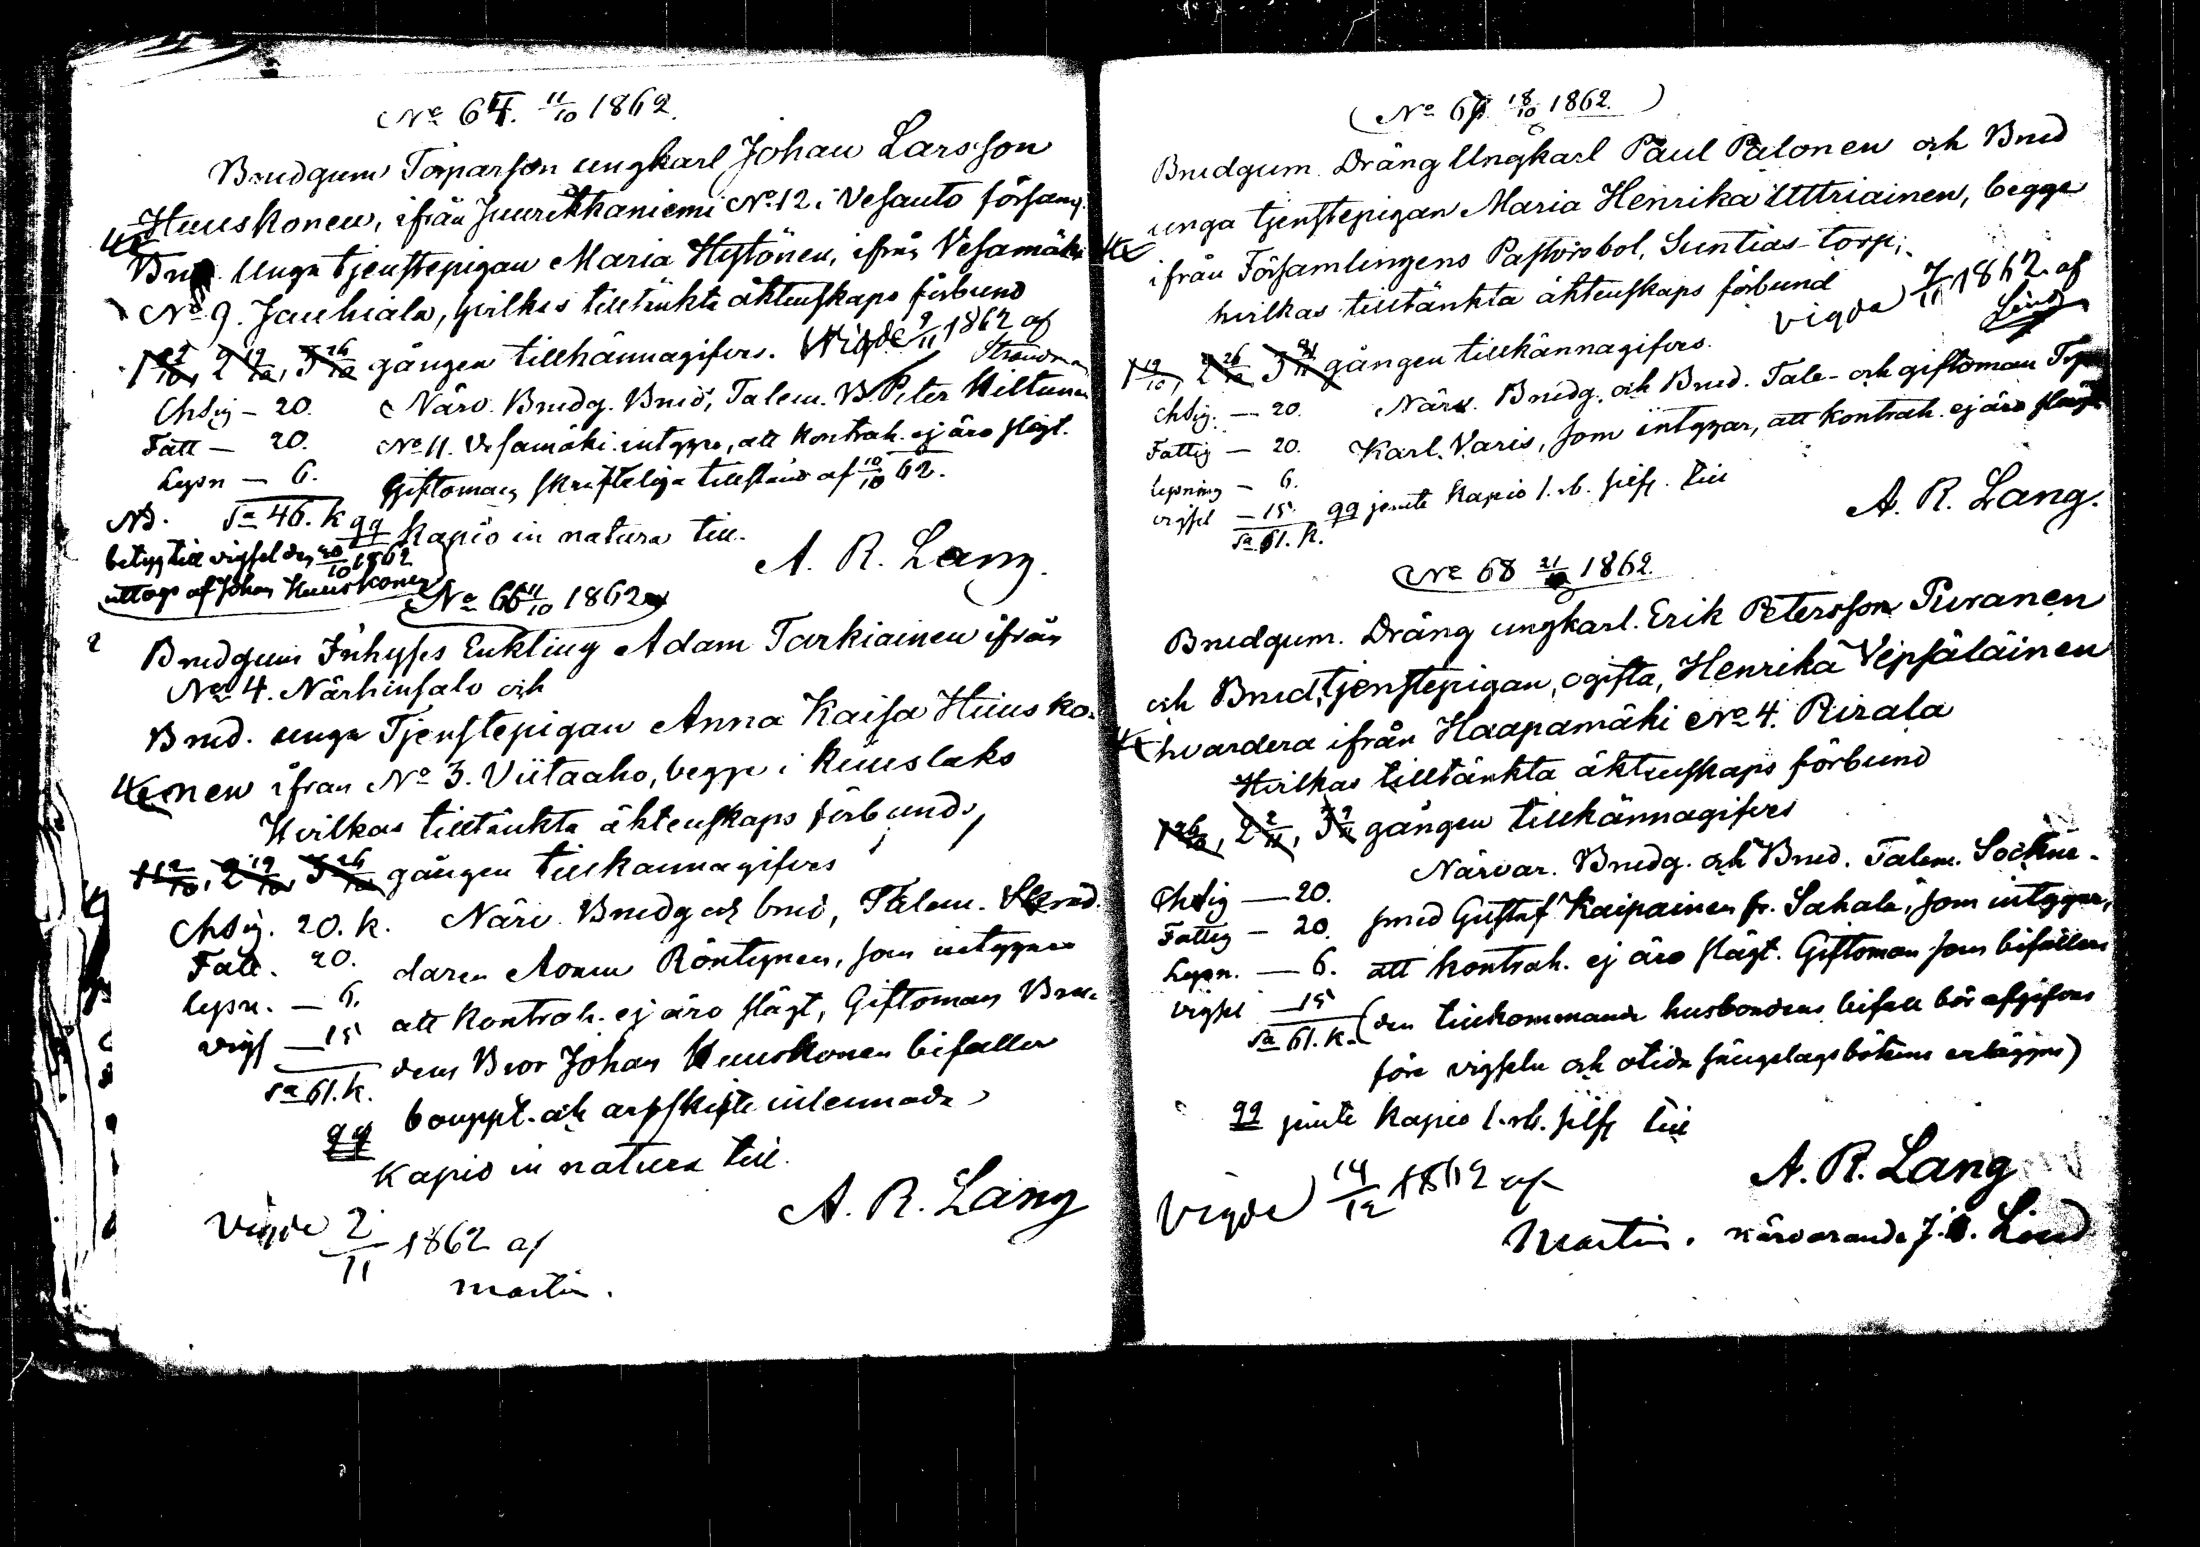 No 64. 11/10 1862.
Brudgum Torparson ungkarl Johan Larsson
Huuskonen, ifrån Juurikkaniemi No 12. i Vesanto församl.
Brud. Unga tjenstepigan Maria Hytönen, ifrån Vesamäki
No 9. Jauhiala, hvilkas tilltänkta äktenskaps förbund
1 12/10, 2 19/10, 3 26/10 gången tillkännagifves. Vigde 9/11 1862 af
Strandman
Chsig — 20. Närv. Brudg. Brud, Talem. B. Peter Hiltunen
Fatt — 20. No 11. Vesamäki intygar, att kontrah. ej äro slägt.
Lysn — 6. Giftomans skrifteliga tillstånd af 10/10 62.
Sa 46. k qq Kapio in natura till.
Nb.
betyg till vigsel den 20/10 1862
uttogs af Johan Huuskonen
A. R. Lang.
No 66 11/10 1862
Brudgum Inhyses Enkling Adam Tarkiainen ifrån
No 4. Närhinsalo och
Brud. unga Tjenstepigan Anna Kaisa Huusko-
nen ifran No 3. Viitaaho, begge i Kuuslaks
Hvilkas tilltänkta äktenskaps förbund,
1 12/10, 2 19/10, 3 26/10 gången tillkannagifves
Chsig. 20. k. Närv. Brudg och brud, Talem.
Fatt. 20. daren Röntynen, som intygar
lysn. — 6. att kontrah. ej äro slägt, Giftoman Bru-
vigs — 15 dens Bror Johan Huuskonen bifaller
Sa 61. k. bouppt. och arfskifte inlemnade
qq Kapio in natura till.
A. R. Lang
Vigde 2/11 1862 af
Martin.
(No 67 18/10 1862.)
Brudgum. Dräng Ungkarl Paul Palonen och Brud
unga tjenstepigan Maria Henrika Uttriainen, begge
ifrån Församlingens Pastorsbol, Suntias-torp,
hvilkas tilltänkta äktenskaps förbund
vigde 7/11 1862 af
Lind
1 19/10, 2 26/10 3 gången tillkännagifves.
Chsig. — 20. Närv. Brudg. och Brud. Tale- och giftoman Torp
Fattig — 20. Karl. Varis, som intygar, att kontrah. ej äro slägt
Lysning — 6.
vigsel — 15. qq jemte Kapio 1. rb. silf. till
Sa 61. k.
A. R. Lang.
No 68 21/10 1862.
Brudgum. Dräng ungkarl. Erik Petersson Puranen
och Brud, tjenstepigan, ogifta, Henrika Vepsäläinen
hvardera ifrån Haapamäki No 4. Pirala
Hvilkas tilltänkta äktenskaps förbund
1 26/10, 2 2/11, 3 9/11 gången tillkännagifves
Närvar. Brudg. och Brud. Talem. Sockne-
Chsig — 20.
Fattig — 20. smed Gustaf Kaipainen fr. Sahala, som intygar,
Lysn. — 6. att kontrah. ej äro slägt. Giftoman som bifaller
vigsel — 15 (den tillkommande husbondens bifall bör afgifvas
Sa 61. k.
före vigseln och otida sängelagsböterne erläggas)
qq jemte Kapio 1. rb. silf till
A. R. Lang
Vigde 14/12 1862 af
Martin. närvarande J. Lind